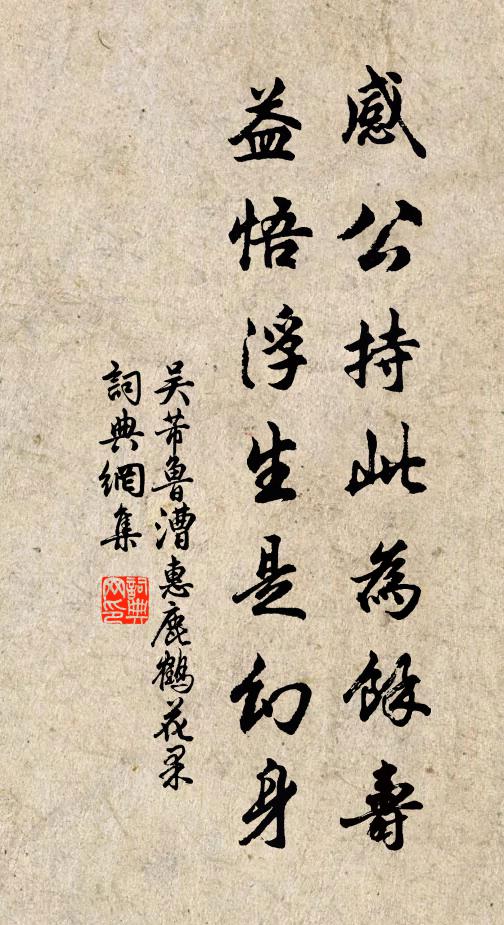 感公持此為餘壽
益悟浮生是幻身
吴芾魯漕惠鹿鶴花果
詞典網集
詞典網印